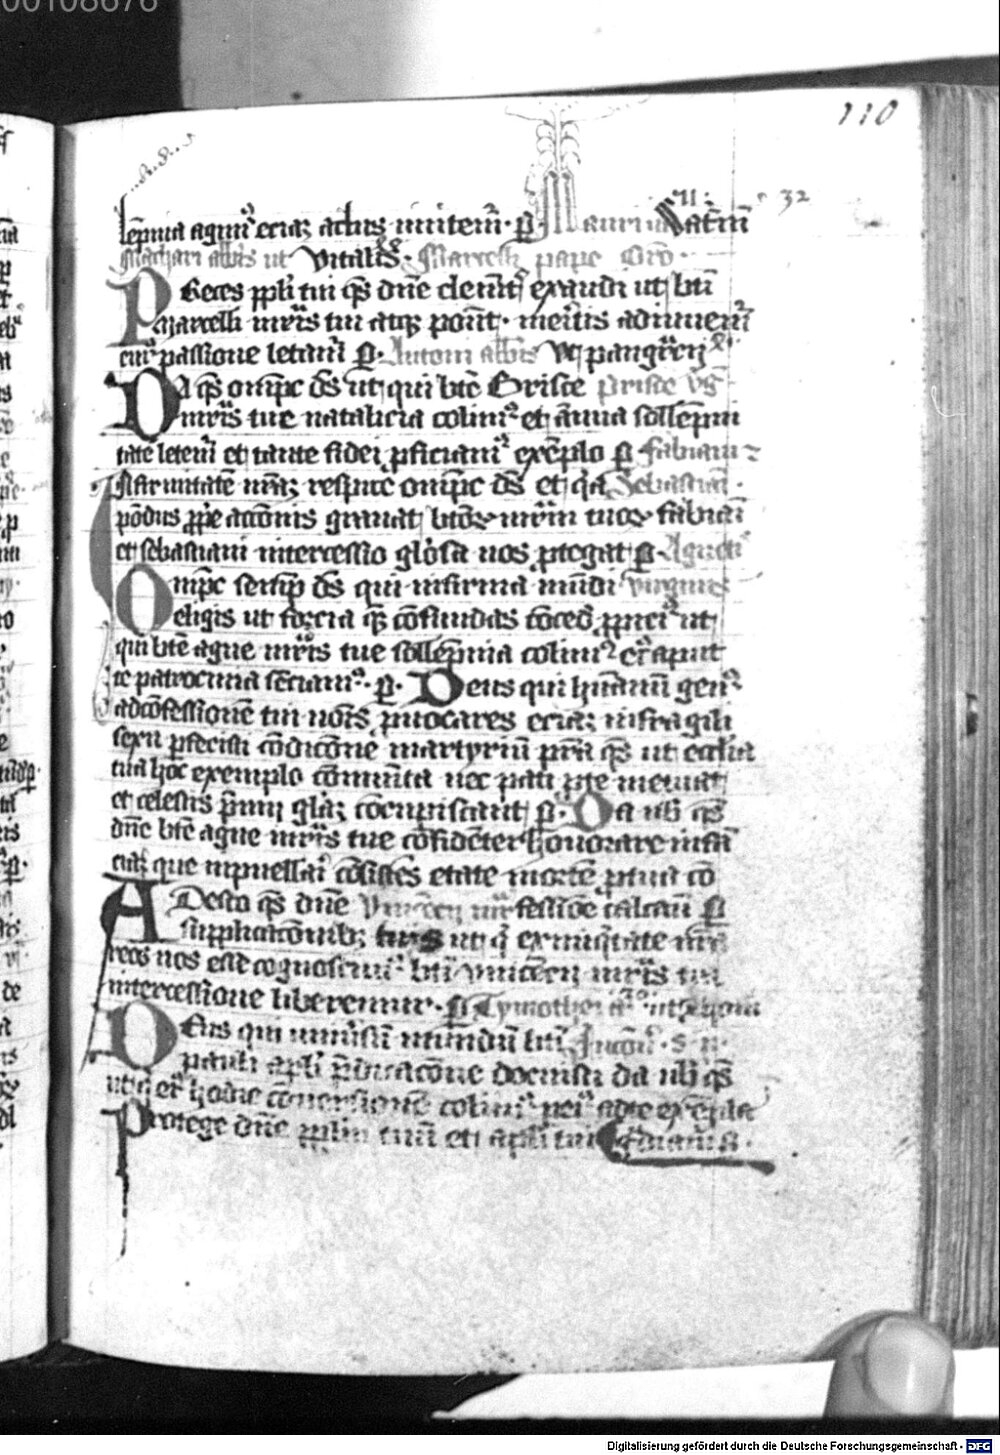 00108676
110
32
lēpnia agim⁹ etiaȝ actus imitem̄. p. Mauri
Machari abbīs ut Vitalis. Marcelli pape Oro
Preces ppli tui qs dn̄e clemēt᷑ exaudi ut bt̄i
Marcelli mr̄is tui atqȝ pont. meritis adiuuem᷑
cui⁹ passione letam᷑ p. Antoni abbīs
Da qs omp̄c ds ut qui bt̄e Prisce prisce vg̅
mr̄is tue natalicia colim⁹ et ānua sollēpni
tate letem᷑ et tante fidei pficiam⁹ exēplo p fabiani
Infirmitatē nr̄aȝ respice omp̄c ds et qa Sebastiani.
pōdus pp̄e accōnis grauat btoꝝ mr̄m tuoꝝ fabiani
et sebastiani intercessio glōsa nos ptegat p. Agnetis
Omp̄c semp ds qui infirma mūdi virginis
eligis ut forcia qȝ cōfundas cōced ppici⁹ ut
qui bt̄e agne mr̄is tue sollēpnia colim⁹ ei⁹ aput
te patrocinia senciam⁹. p. Deus qui humanū gen⁹
ad cōfessionē tui noīs puocares eciaȝ in fragili
sexu pfecisti cōdicōne martyriū pr̄a qs ut ecclia
tua hoc exemplo cōmunita nec pati pte metuat
et celestis p̄mij glāȝ cōcupiscant p. Da nb̄ qs
dn̄e bt̄e agne mr̄is tue cōfidēter honorare infā
ciaȝ que in puellari cōsistēs etate mortē
Adesto qs dn̄e Vincēcij mr̄
supplicacōnibȝ tuis ut q ex iniqtate nr̄a
reos nos esse cognoscim⁹ bt̄i vincēcij mr̄is tui
intercessione liberemur. p Tymothei
Deus qui uniūsū mundū bt̄i
pauli apl̄i p̄dicacōne docuisti da nb̄ qs
ut q ei⁹ hodie cōuersionē colim⁹ ad te exēpla
Protege dn̄e pplm tuū et apl̄i tui
Digitalisierung gefördert durch die Deutsche Forschungsgemeinschaft - DFG